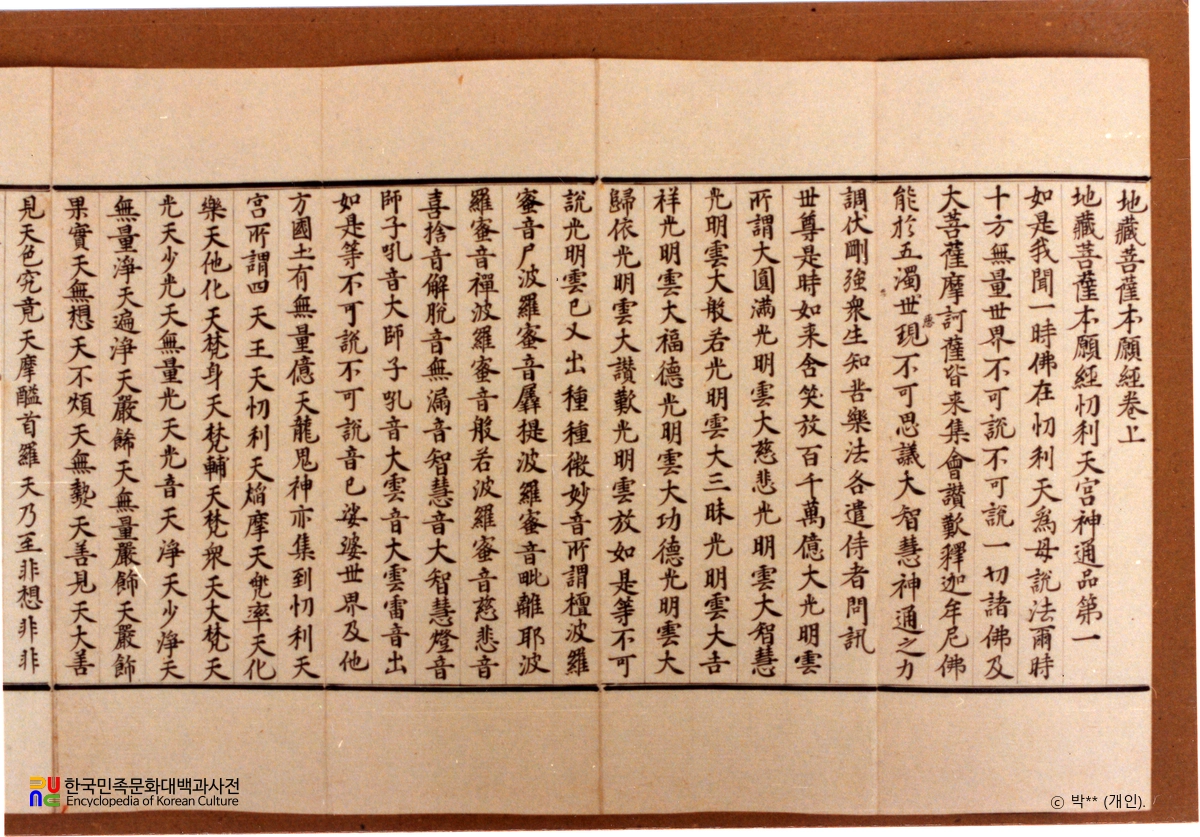 地藏菩薩本願經卷上
地藏菩薩本願經忉利天宮神通品第一
如是我聞一時佛在忉利天爲母說法爾時
十方無量世界不可說不可說一切諸佛及
大菩薩摩訶薩皆来集會讃歎釋迦牟尼佛
能於五濁世現不可思議大智慧神通之力
應
調伏剛強衆生知苦樂法各遣侍者問訊
世尊是時如来含笑放百千萬億大光明雲
所謂大圓滿光明雲大慈悲光明雲大智慧
光明雲大般若光明雲大三昧光明雲大吉
祥光明雲大福德光明雲大功德光明雲大
歸依光明雲大讃歎光明雲放如是等不可
說光明雲已又出種種微妙音所謂檀波羅
蜜音尸波羅蜜音羼提波羅蜜音毗離耶波
羅蜜音禪波羅蜜音般若波羅蜜音慈悲音
喜捨音解脫音無漏音智慧音大智慧燈音
師子吼音大師子吼音大雲音大雲雷音出
如是等不可說不可說音已娑婆世界及他
方國土有無量億天龍鬼神亦集到忉利天
宮所謂四天王天忉利天焔摩天兠率天化
樂天他化天梵身天梵輔天梵衆天大梵天
光天少光天無量光天光音天淨天少淨天
無量淨天遍淨天嚴餙天無量嚴飾天嚴飾
果實天無想天不煩天無𤍠天善見天大善
見天色究竟天摩醯首羅天乃至非想非非
한국민족문화대백과사전
Encyclopedia of Korean Culture
ⓒ 박** (개인).